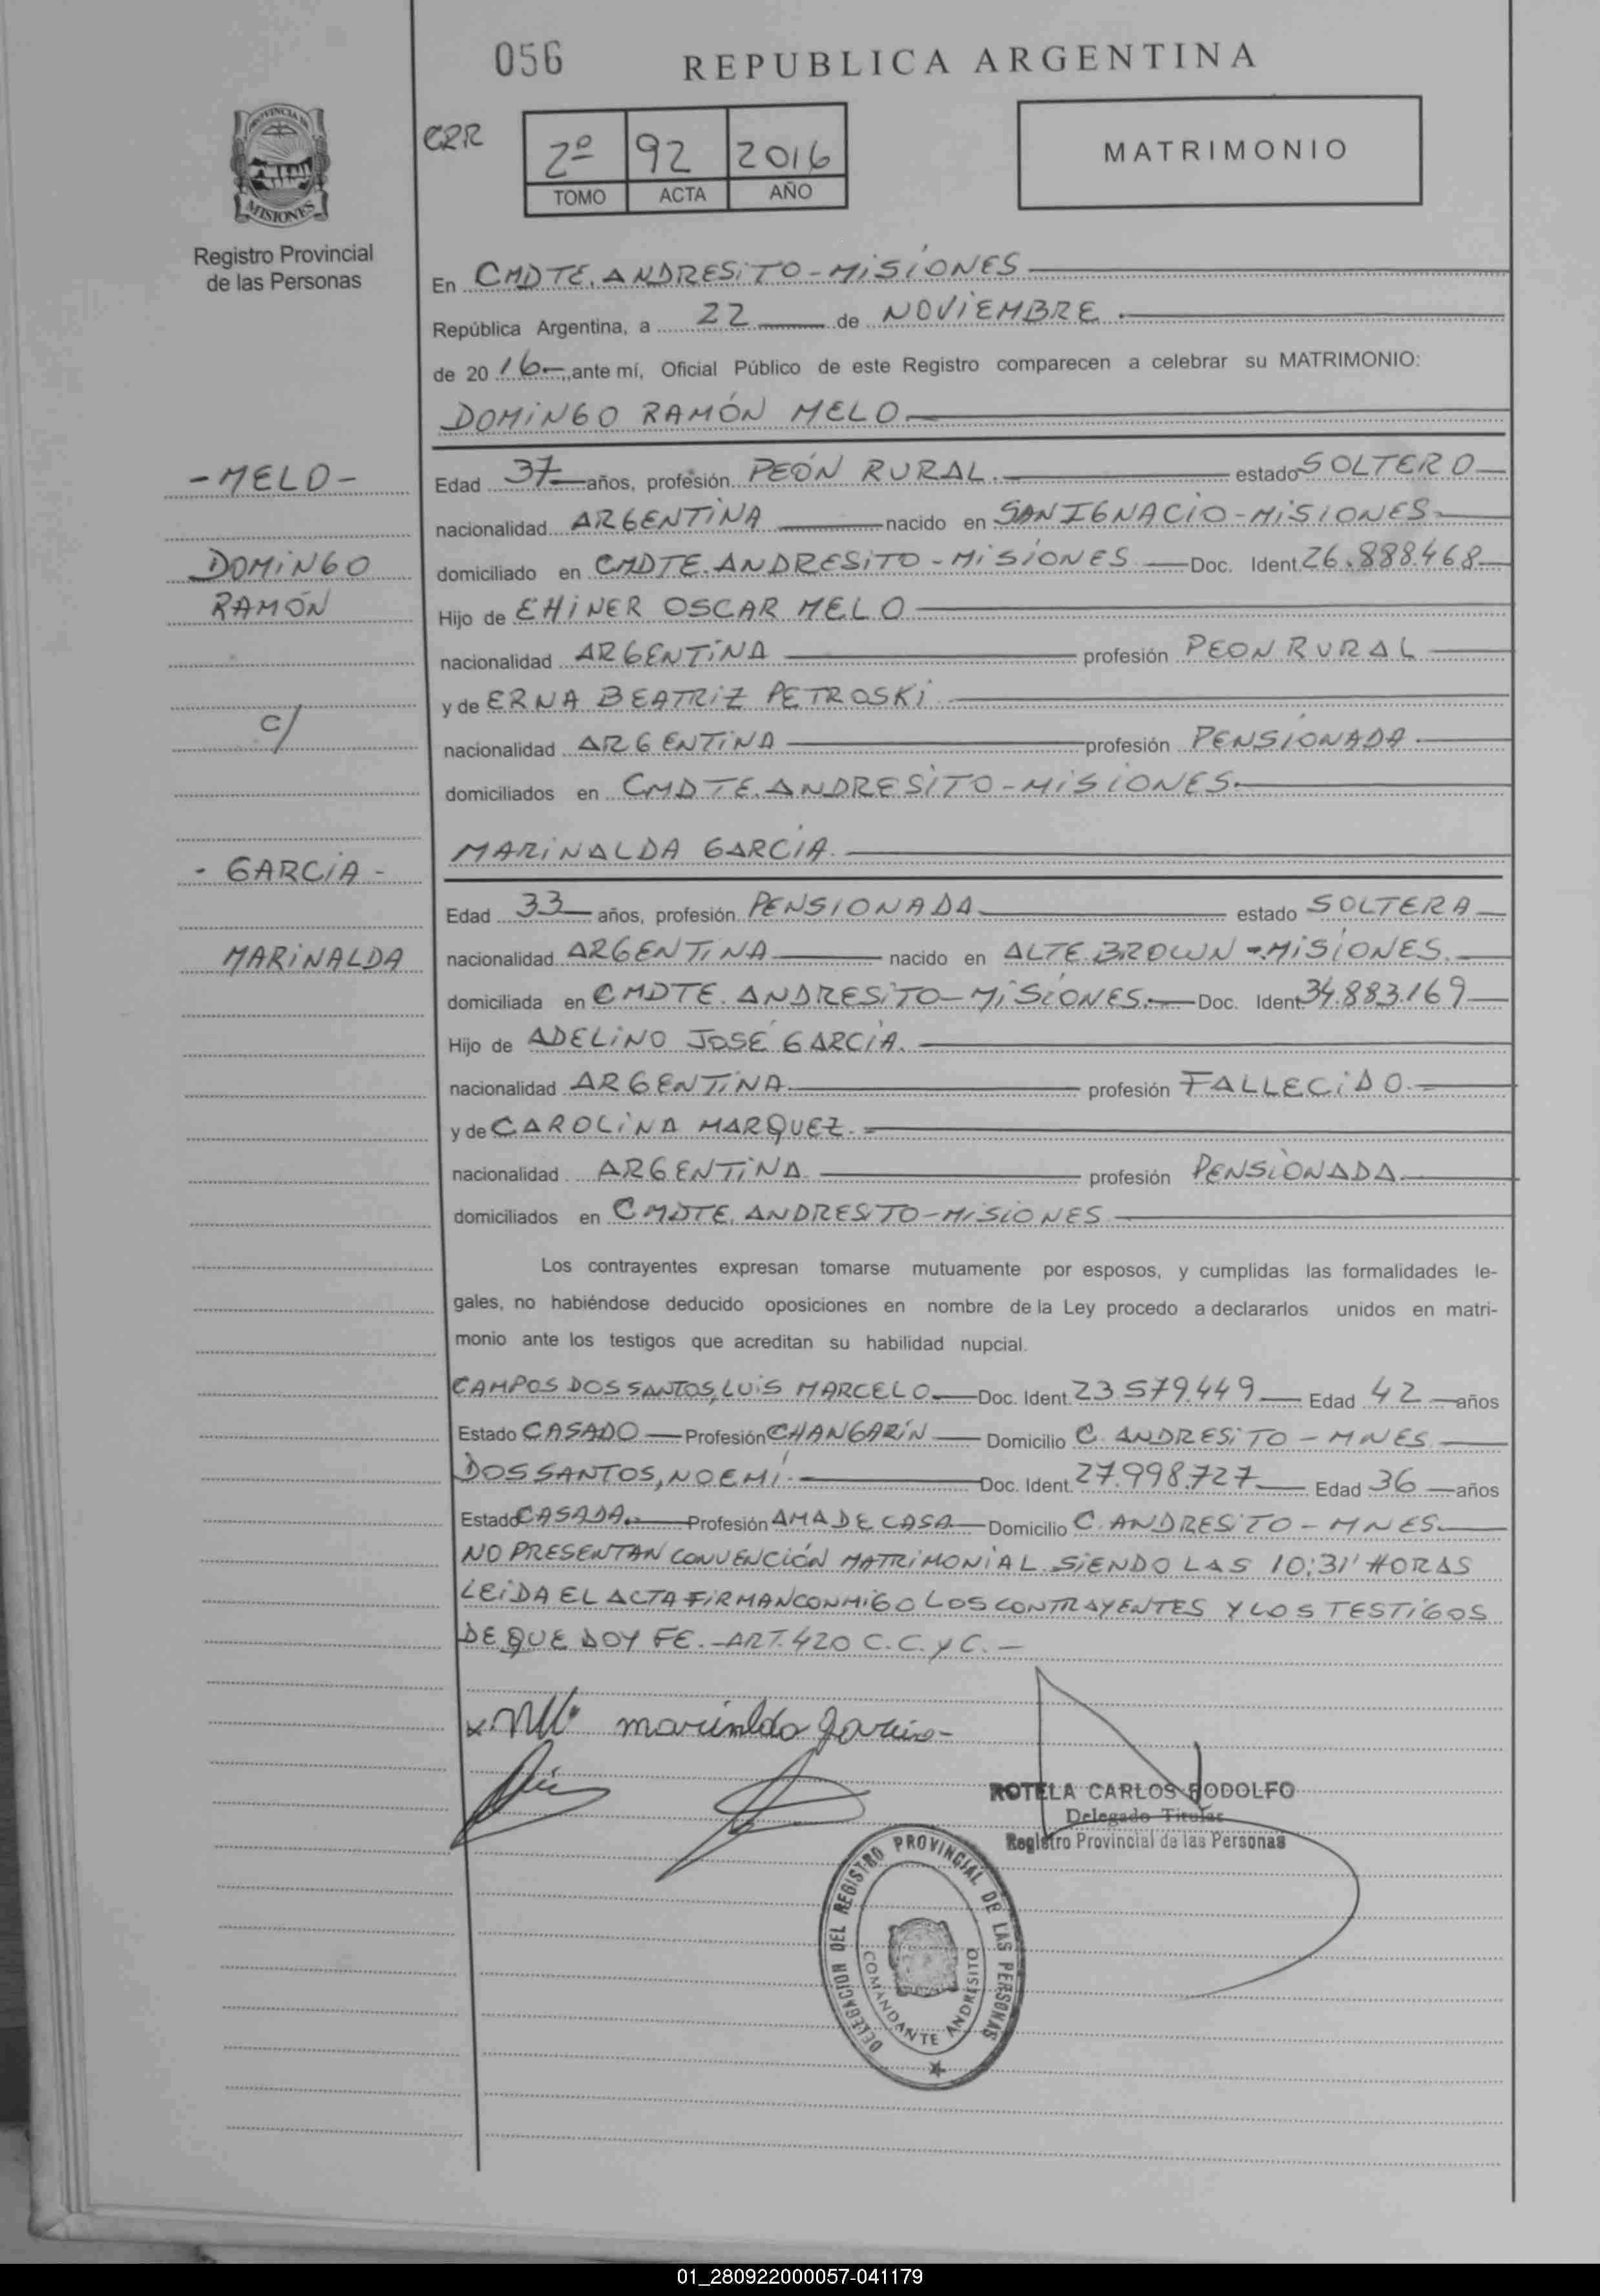 056
REPUBLICA ARGENTINA
PROVINCIA DE
MISIONES
Registro Provincial
de las Personas
CRR
2º 92 2016
TOMO ACTA AÑO
MATRIMONIO
En CMDTE. ANDRESITO - MISIONES
República Argentina, a 22 de NOVIEMBRE
de 2016, ante mí, Oficial Público de este Registro comparecen a celebrar su MATRIMONIO:
DOMINGO RAMÓN MELO
- MELO -
Edad 37 años, profesión PEÓN RURAL. estado SOLTERO
nacionalidad ARGENTINA nacido en SAN IGNACIO - MISIONES
DOMINGO
domiciliado en CMDTE. ANDRESITO - MISIONES Doc. Ident. 26.888.468
RAMÓN
Hijo de EHINER OSCAR MELO
nacionalidad ARGENTINA profesión PEON RURAL
y de ERNA BEATRIZ PETROSKI
c/
nacionalidad ARGENTINA profesión PENSIONADA
domiciliados en CMDTE. ANDRESITO - MISIONES.
MARINALDA GARCÍA.
- GARCÍA -
Edad 33 años, profesión PENSIONADA estado SOLTERA
MARINALDA
nacionalidad ARGENTINA nacido en ALTE. BROWN - MISIONES.
domiciliada en CMDTE. ANDRESITO - MISIONES. Doc. Ident. 34.883.169
Hijo de ADELINO JOSÉ GARCÍA.
nacionalidad ARGENTINA profesión FALLECIDO.
y de CAROLINA MARQUEZ.
nacionalidad ARGENTINA profesión PENSIONADA.
domiciliados en CMDTE. ANDRESITO - MISIONES
Los contrayentes expresan tomarse mutuamente por esposos, y cumplidas las formalidades le-
gales, no habiéndose deducido oposiciones en nombre de la Ley procedo a declararlos unidos en matri-
monio ante los testigos que acreditan su habilidad nupcial.
CAMPOS DOS SANTOS, LUIS MARCELO Doc. Ident. 23.579.449 Edad 42 años
Estado CASADO Profesión CHANGARÍN Domicilio C. ANDRESITO - MNES
DOS SANTOS, NOEMÍ. Doc. Ident. 27.998.727 Edad 36 años
Estado CASADA. Profesión AMA DE CASA Domicilio C. ANDRESITO - MNES
NO PRESENTAN CONVENCIÓN MATRIMONIAL. SIENDO LAS 10:31' HORAS
LEIDA EL ACTA FIRMAN CONMIGO LOS CONTRAYENTES Y LOS TESTIGOS
DE QUE DOY FE. - ART. 420 C.C. y C. -
marinalda garcia
ROTELA CARLOS RODOLFO
Delegado Titular
Registro Provincial de las Personas
DELEGACION DEL REGISTRO PROVINCIAL DE LAS PERSONAS
COMANDANTE ANDRESITO
01_280922000057-041179